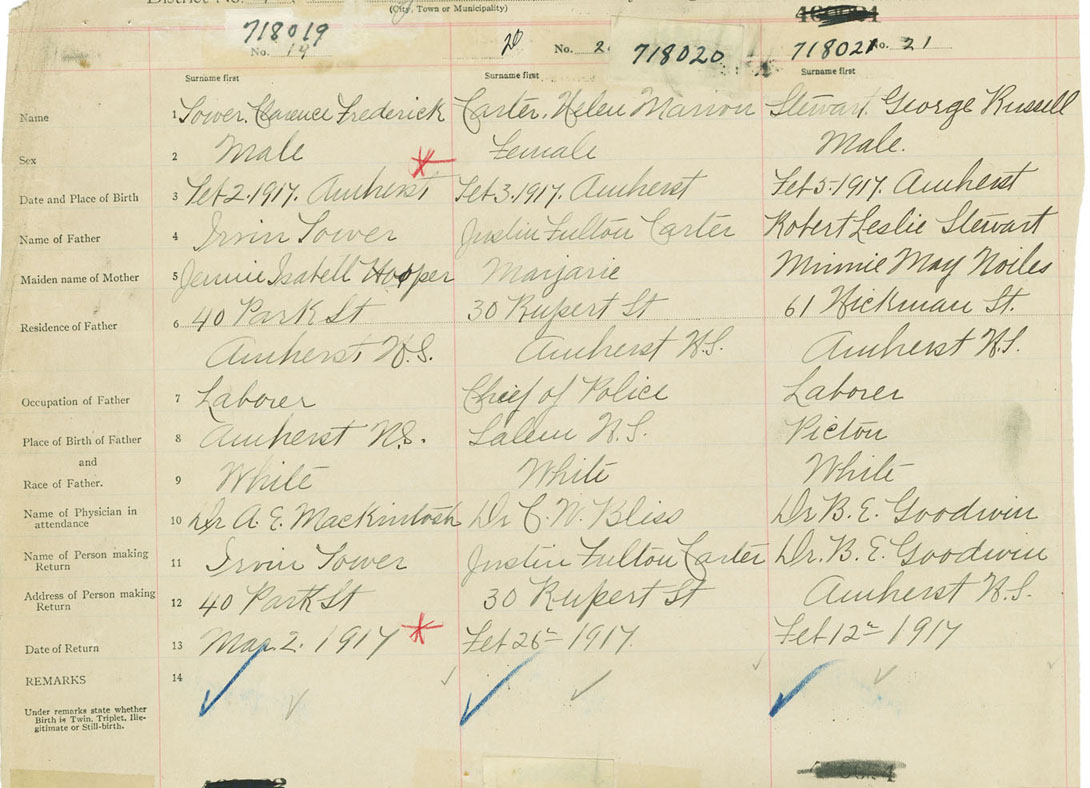 District No.
(City, Town or Municipality)
718019 718020 718021
No. 19 20 No. 2 No. 21
Surname first Surname first Surname first
Name 1 Tower, Clarence Frederick Carter, Helen Marion Stewart, George Russell
Sex 2 Male Female Male.
Date and Place of Birth 3 Feb 2. 1917. Amherst Feb 3. 1917. Amherst Feb 5. 1917. Amherst
Name of Father 4 Irvin Tower Justin Fulton Carter Robert Leslie Stewart
Maiden name of Mother 5 Jennie Isabell Hooper Marjarie Minnie May Noiles
Residence of Father 6 40 Park St 30 Rupert St 61 Hickman St.
Amherst N.S. Amherst N.S. Amherst N.S.
Occupation of Father 7 Laborer Chief of Police Laborer
Place of Birth of Father 8 Amherst N.S. Salem N.S. Picton
and
Race of Father. 9 White White White
Name of Physician in attendance 10 Dr A. E. Mackintosh Dr C. W. Bliss Dr B. E. Goodwin
Name of Person making Return 11 Irvin Tower Justin Fulton Carter Dr. B. E. Goodwin
Address of Person making Return 12 40 Park St 30 Rupert St Amherst N.S.
Date of Return 13 Mar. 2. 1917 Feb 26th 1917. Feb 12th 1917
REMARKS 14
Under remarks state whether
Birth is Twin, Triplet, Ille-
gitimate or Still-birth.